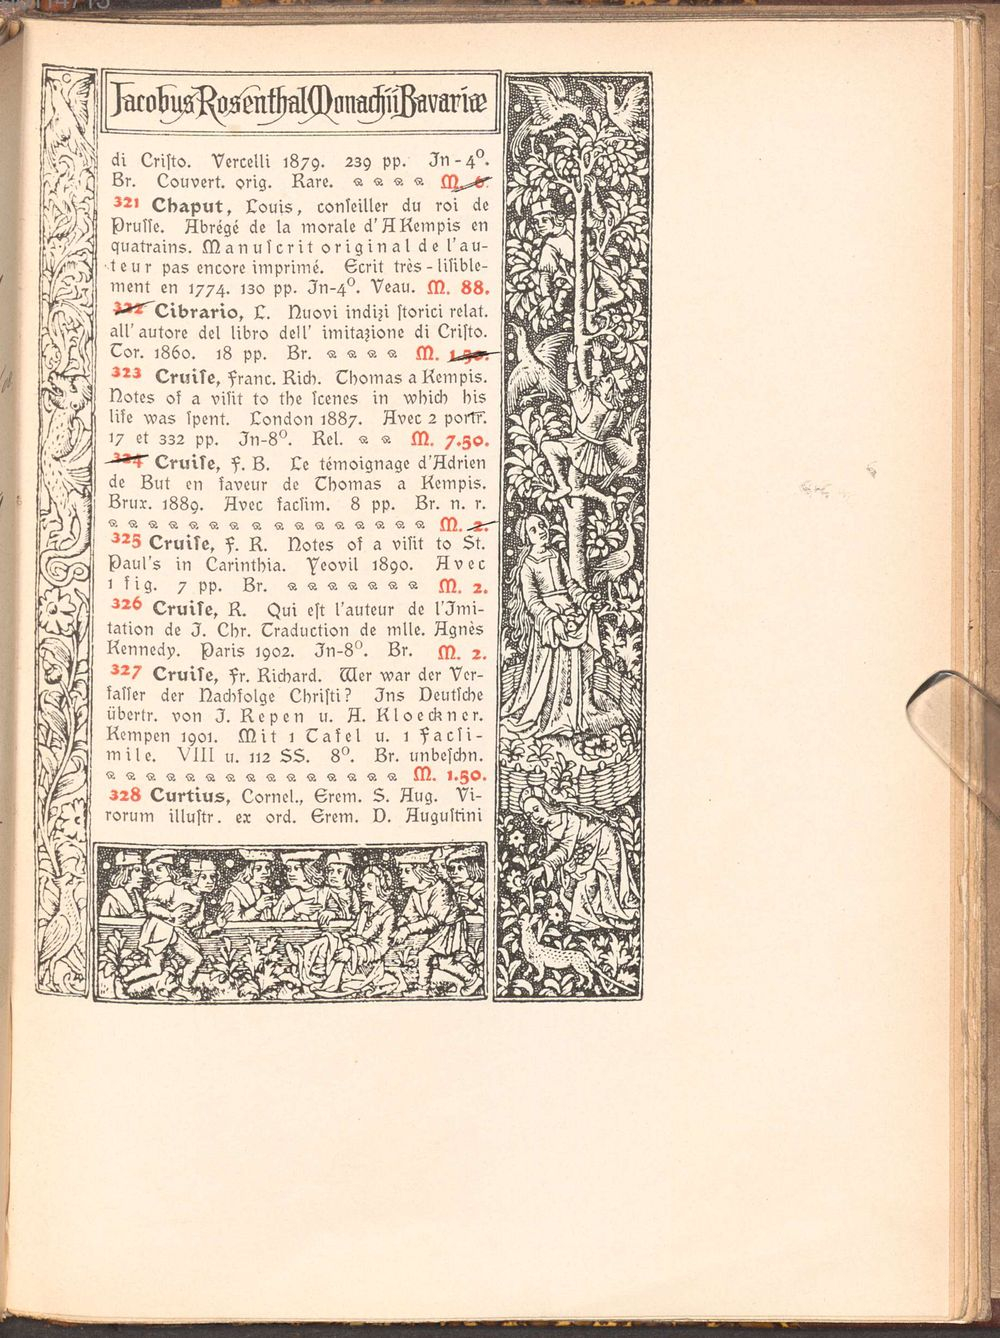 Jacobus Rosenthal Monachii Bavariæ
di Criſto. Vercelli 1879. 239 pp. In-4⁰.
Br. Couvert. orig. Rare. M. 6.
321 Chaput, Louis, conſeiller du roi de
Pruſſe. Abrégé de la morale d'A Kempis en
quatrains. Manuſcrit original de l'au-
teur pas encore imprimé. Ecrit très-liſible-
ment en 1774. 130 pp. In-4⁰. Veau. M. 88.
322 Cibrario, L. Nuovi indizi ſtorici relat.
all' autore del libro dell' imitazione di Criſto.
Tor. 1860. 18 pp. Br. M. 1.50.
323 Cruiſe, Franc. Rich. Thomas a Kempis.
Notes of a viſit to the ſcenes in which his
life was ſpent. London 1887. Avec 2 portr.
17 et 332 pp. In-8⁰. Rel. M. 7.50.
324 Cruiſe, F. B. Le témoignage d'Adrien
de But en faveur de Thomas a Kempis.
Brux. 1889. Avec facſim. 8 pp. Br. n. r.
M. 2.
325 Cruiſe, F. R. Notes of a viſit to St.
Paul's in Carinthia. Yeovil 1890. Avec
1 fig. 7 pp. Br. M. 2.
326 Cruiſe, R. Qui eſt l'auteur de l'Imi-
tation de J. Chr. Traduction de mlle. Agnès
Kennedy. Paris 1902. In-8⁰. Br. M. 2.
327 Cruiſe, Fr. Richard. Wer war der Ver-
faſſer der Nachfolge Chriſti? Ins Deutſche
übertr. von J. Repen u. A. Kloeckner.
Kempen 1901. Mit 1 Tafel u. 1 Facſi-
mile. VIII u. 112 SS. 8⁰. Br. unbeſchn.
M. 1.50.
328 Curtius, Cornel., Erem. S. Aug. Vi-
rorum illuſtr. ex ord. Erem. D. Auguſtini